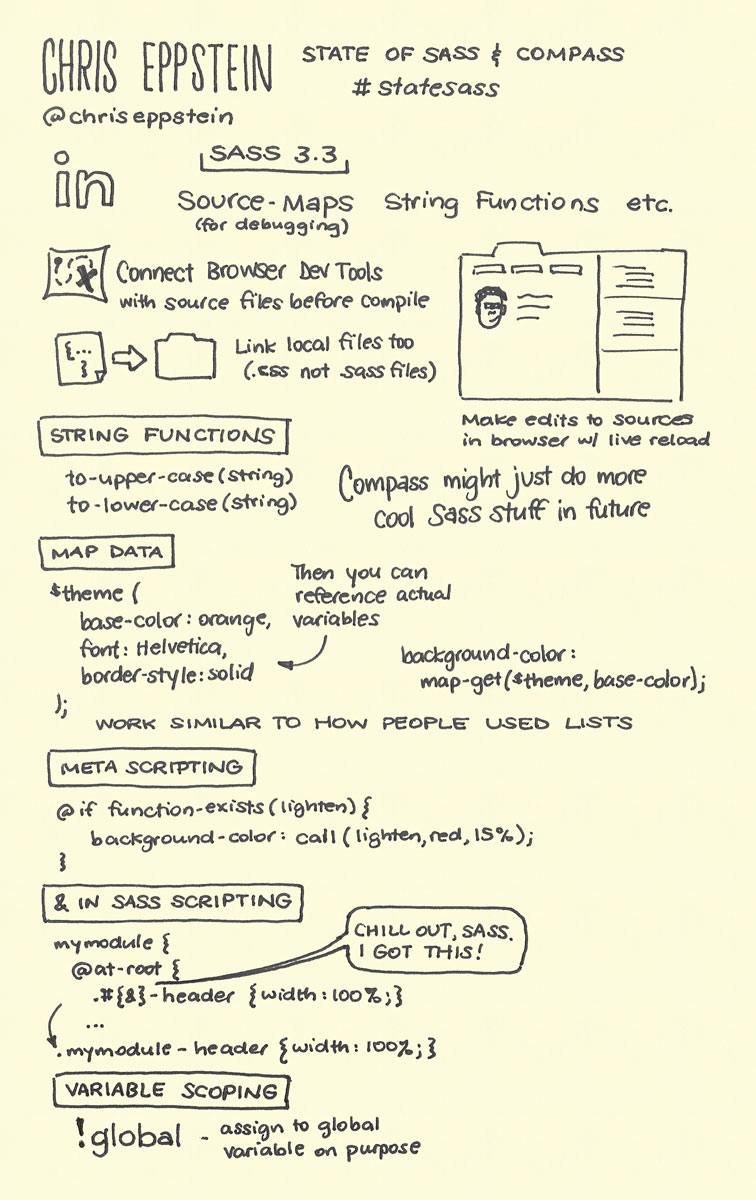 CHRIS EPPSTEIN
STATE OF SASS & COMPASS
#statesass
@chriseppstein
in
SASS 3.3
Source-Maps String Functions etc.
(for debugging)
Connect Browser Dev Tools
with source files before compile
{...
}
Link local files too
(.css not sass files)
Make edits to sources
in browser w/ live reload
STRING FUNCTIONS
to-upper-case(string)
to-lower-case(string)
Compass might just do more
cool Sass stuff in future
MAP DATA
$theme (
base-color: orange,
font: Helvetica,
border-style: solid
);
Then you can
reference actual
variables
background-color:
map-get($theme, base-color);
WORK SIMILAR TO HOW PEOPLE USED LISTS
META SCRIPTING
@if function-exists(lighten) {
background-color: call(lighten, red, 15%);
}
& IN SASS SCRIPTING
mymodule {
@at-root {
.#{&}-header {width: 100%;}
...
.mymodule-header {width: 100%;}
CHILL OUT, SASS.
I GOT THIS!
VARIABLE SCOPING
!global - assign to global
variable on purpose